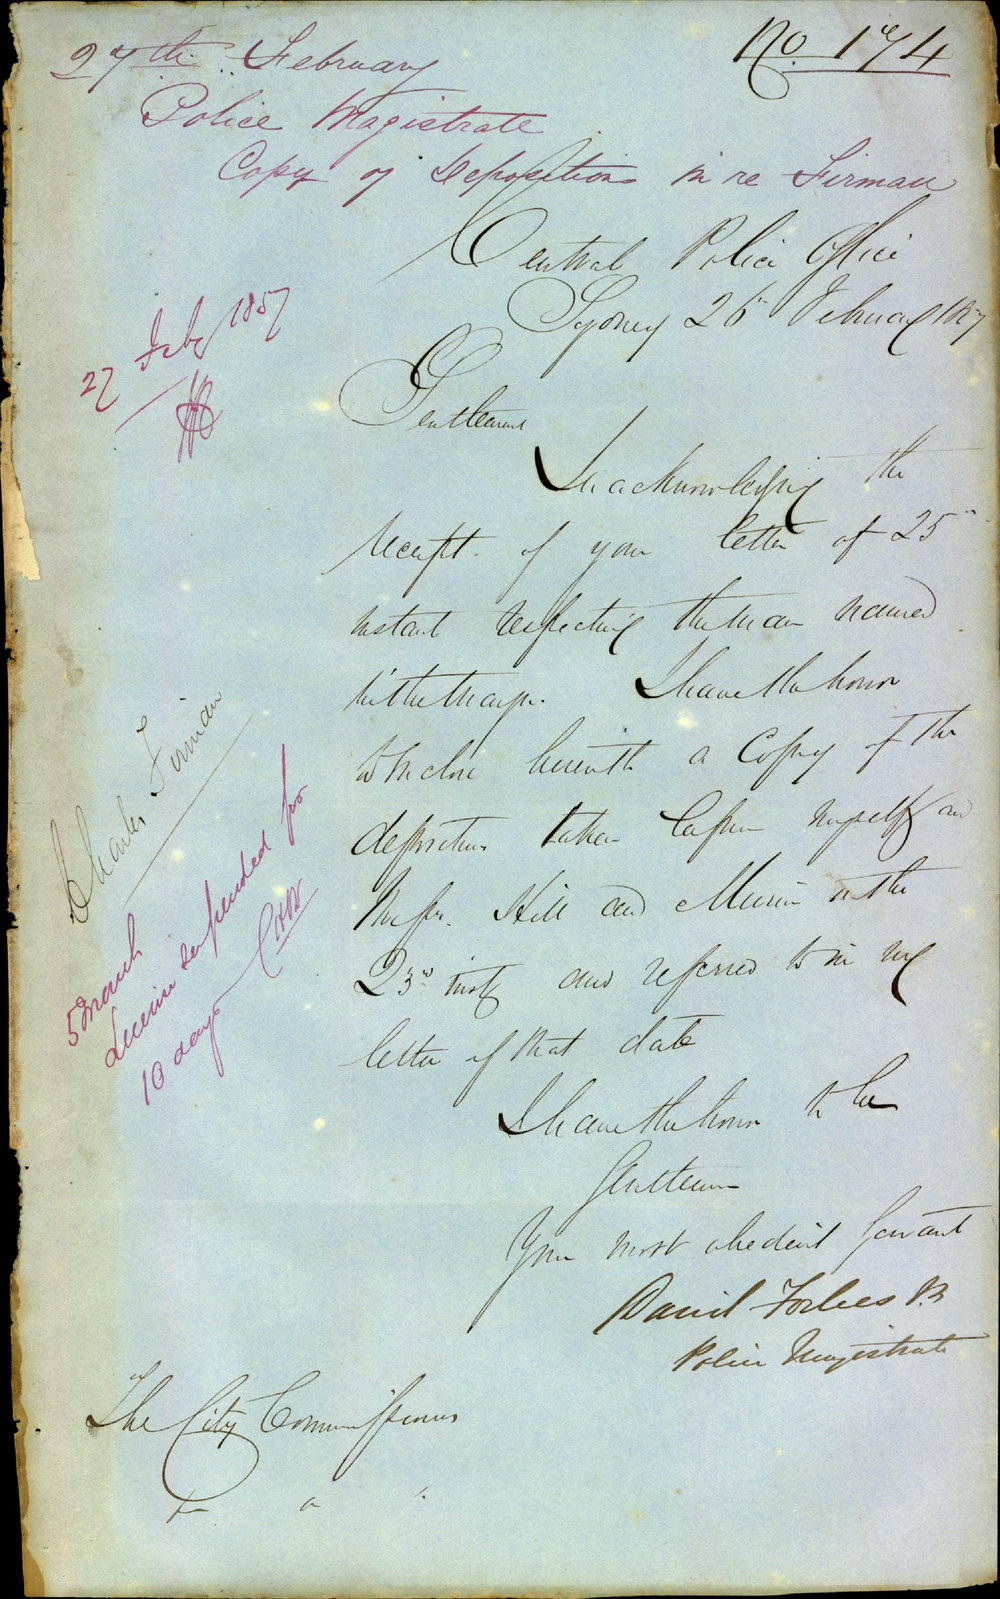 No. 174
27th February
Police Magistrate
Copy of Depositions in re Firman
Central Police Office
Sydney 26th February 1857
27 Feby 1857
Gentlemen
In acknowledging the
receipt of your letter of 25th
instant respecting the man named
in the margin. I have the honor
to inclose herewith a Copy of the
depositions taken before myself and
Messrs. Hill and on the
23rd inst and referred to in my
letter of that date
Charles Firman
5 March
license suspended for
10 days
I have the honor to be
Gentlemen
Your most obedient Servant
David Forbes
Police Magistrate
The City Commissioners